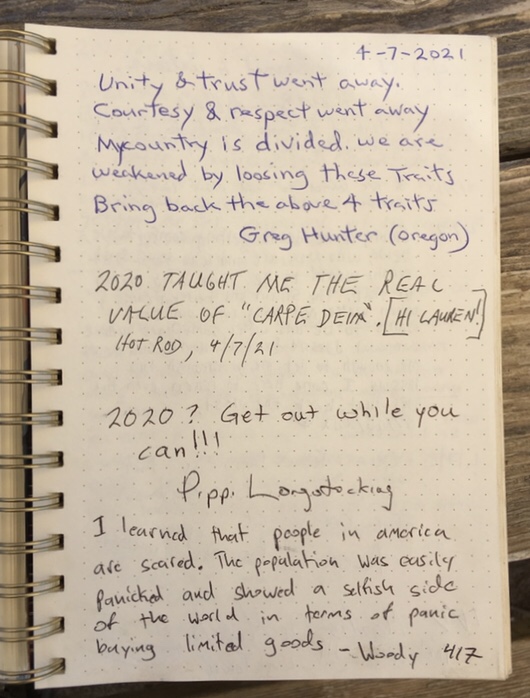 4-7-2021
Unity & trust went away.
Courtesy & respect went away
My country is divided. we are
weakened by loosing these Traits
Bring back the above 4 traits
Greg Hunter (oregon)
2020 TAUGHT ME THE REAL
VALUE OF "CARPE DEIM". [HI LAUREN!]
HOT ROD, 4/7/21
2020? Get out while you
can!!!
Pippi Longstocking
I learned that people in america
are scared. The population was easily
panicked and showed a selfish side
of the world in terms of panic
buying limited goods - Woody 4/7